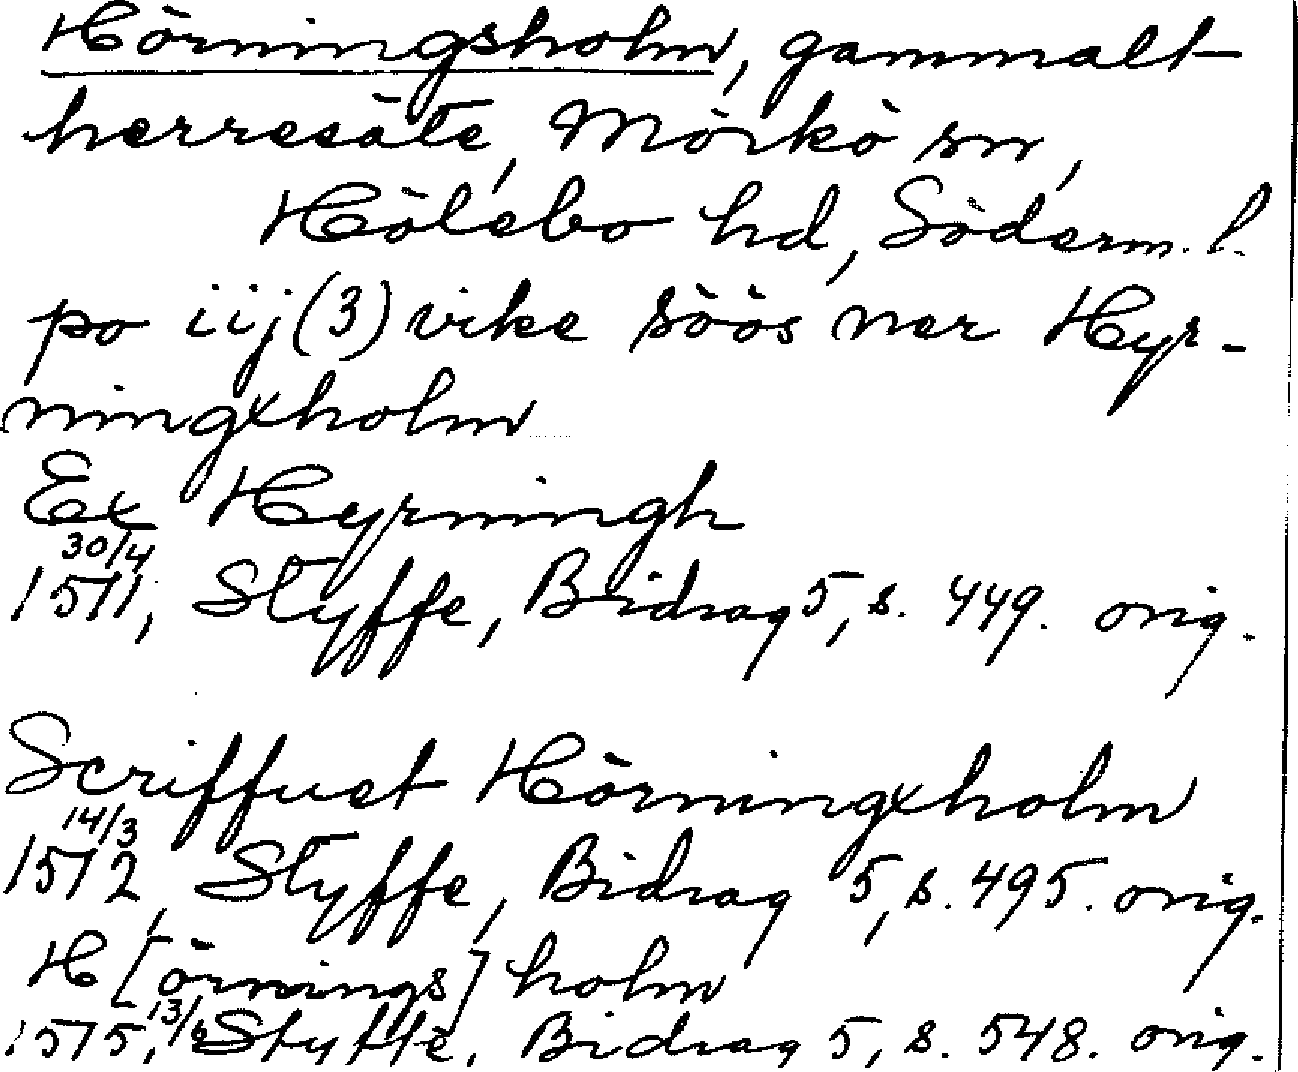 Hörningsholm, gammalt
herresäte, Mörkö sn,
Hölebo hd, Söderm. l.
po iij (3) vike söös ner Hyr-
ningxholm
Ex Hyrningh
30/4
1511, Styffe, Bidrag 5, s. 449. orig.
Scriffuet Hörningxholm
14/3
1512, Styffe, Bidrag 5, s. 495. orig.
H [örnings] holm
1515, Styffe, Bidrag 5, s. 548. orig.